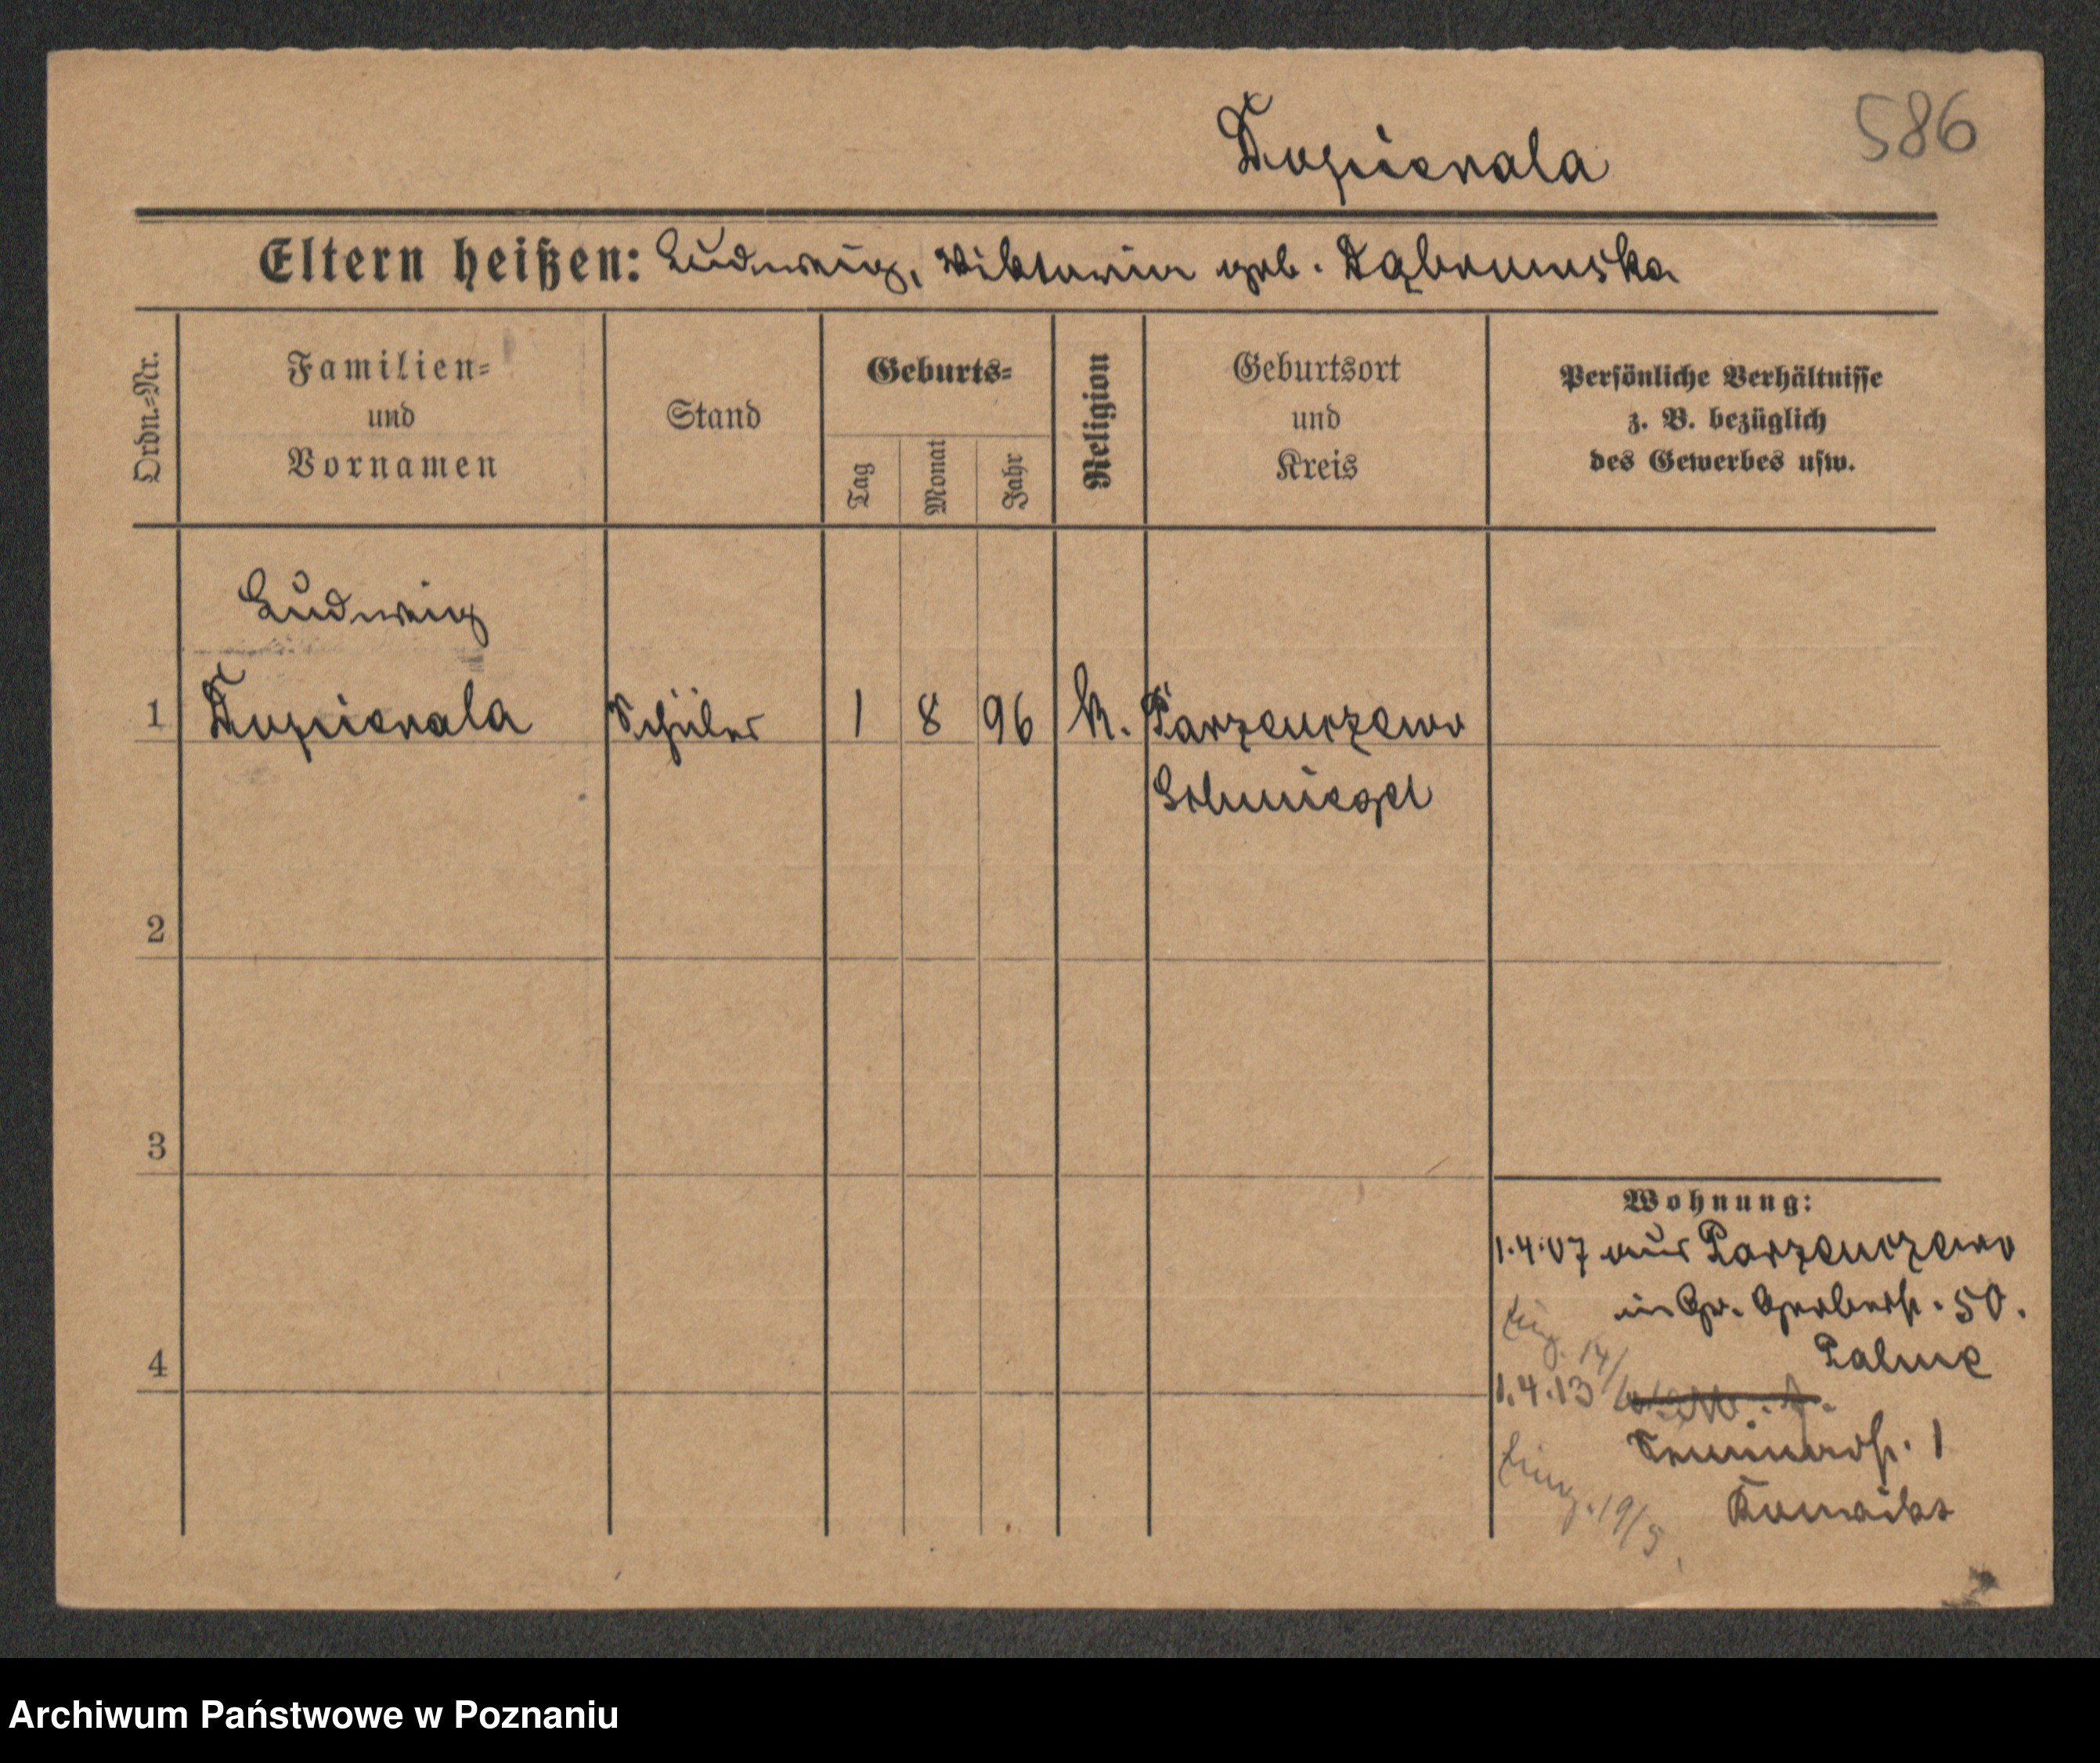 586
Dopierala
Eltern heißen: Ludwig, Viktoria geb. Dąbrowska
Ordn.=Nr.
Familien=
und
Vornamen
Stand
Geburts=
Tag
Monat
Jahr
Religion
Geburtsort
und
Kreis
Persönliche Verhältnisse
z. B. bezüglich
des Gewerbes usw.
Ludwig
1 Dopierala Schüler 1 8 96 k. Parzenczewo
Schmiegel
2
3
4
Wohnung:
1.4.07 aus Parzenczewo
in Gr. Gerberstr. 50.
1.4.13
Seminarstr. 1
Konvikt
Archiwum Państwowe w Poznaniu